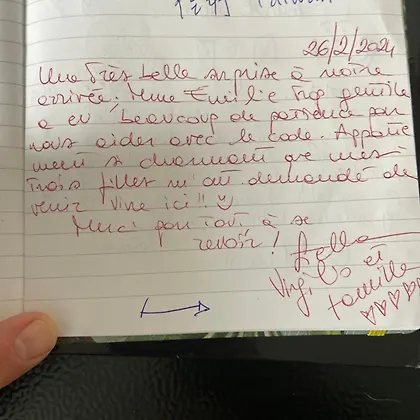 26/2/2024
Une très belle surprise à notre
arrivée; Mme Emilie trop gentille
a eu beaucoup de patience pour
nous aider avec le code. Apparte
ment si charmant que mes
trois filles m'ont demandé de
venir vivre ici!! ☺
Merci pour tout à se
revoir!
et
famille